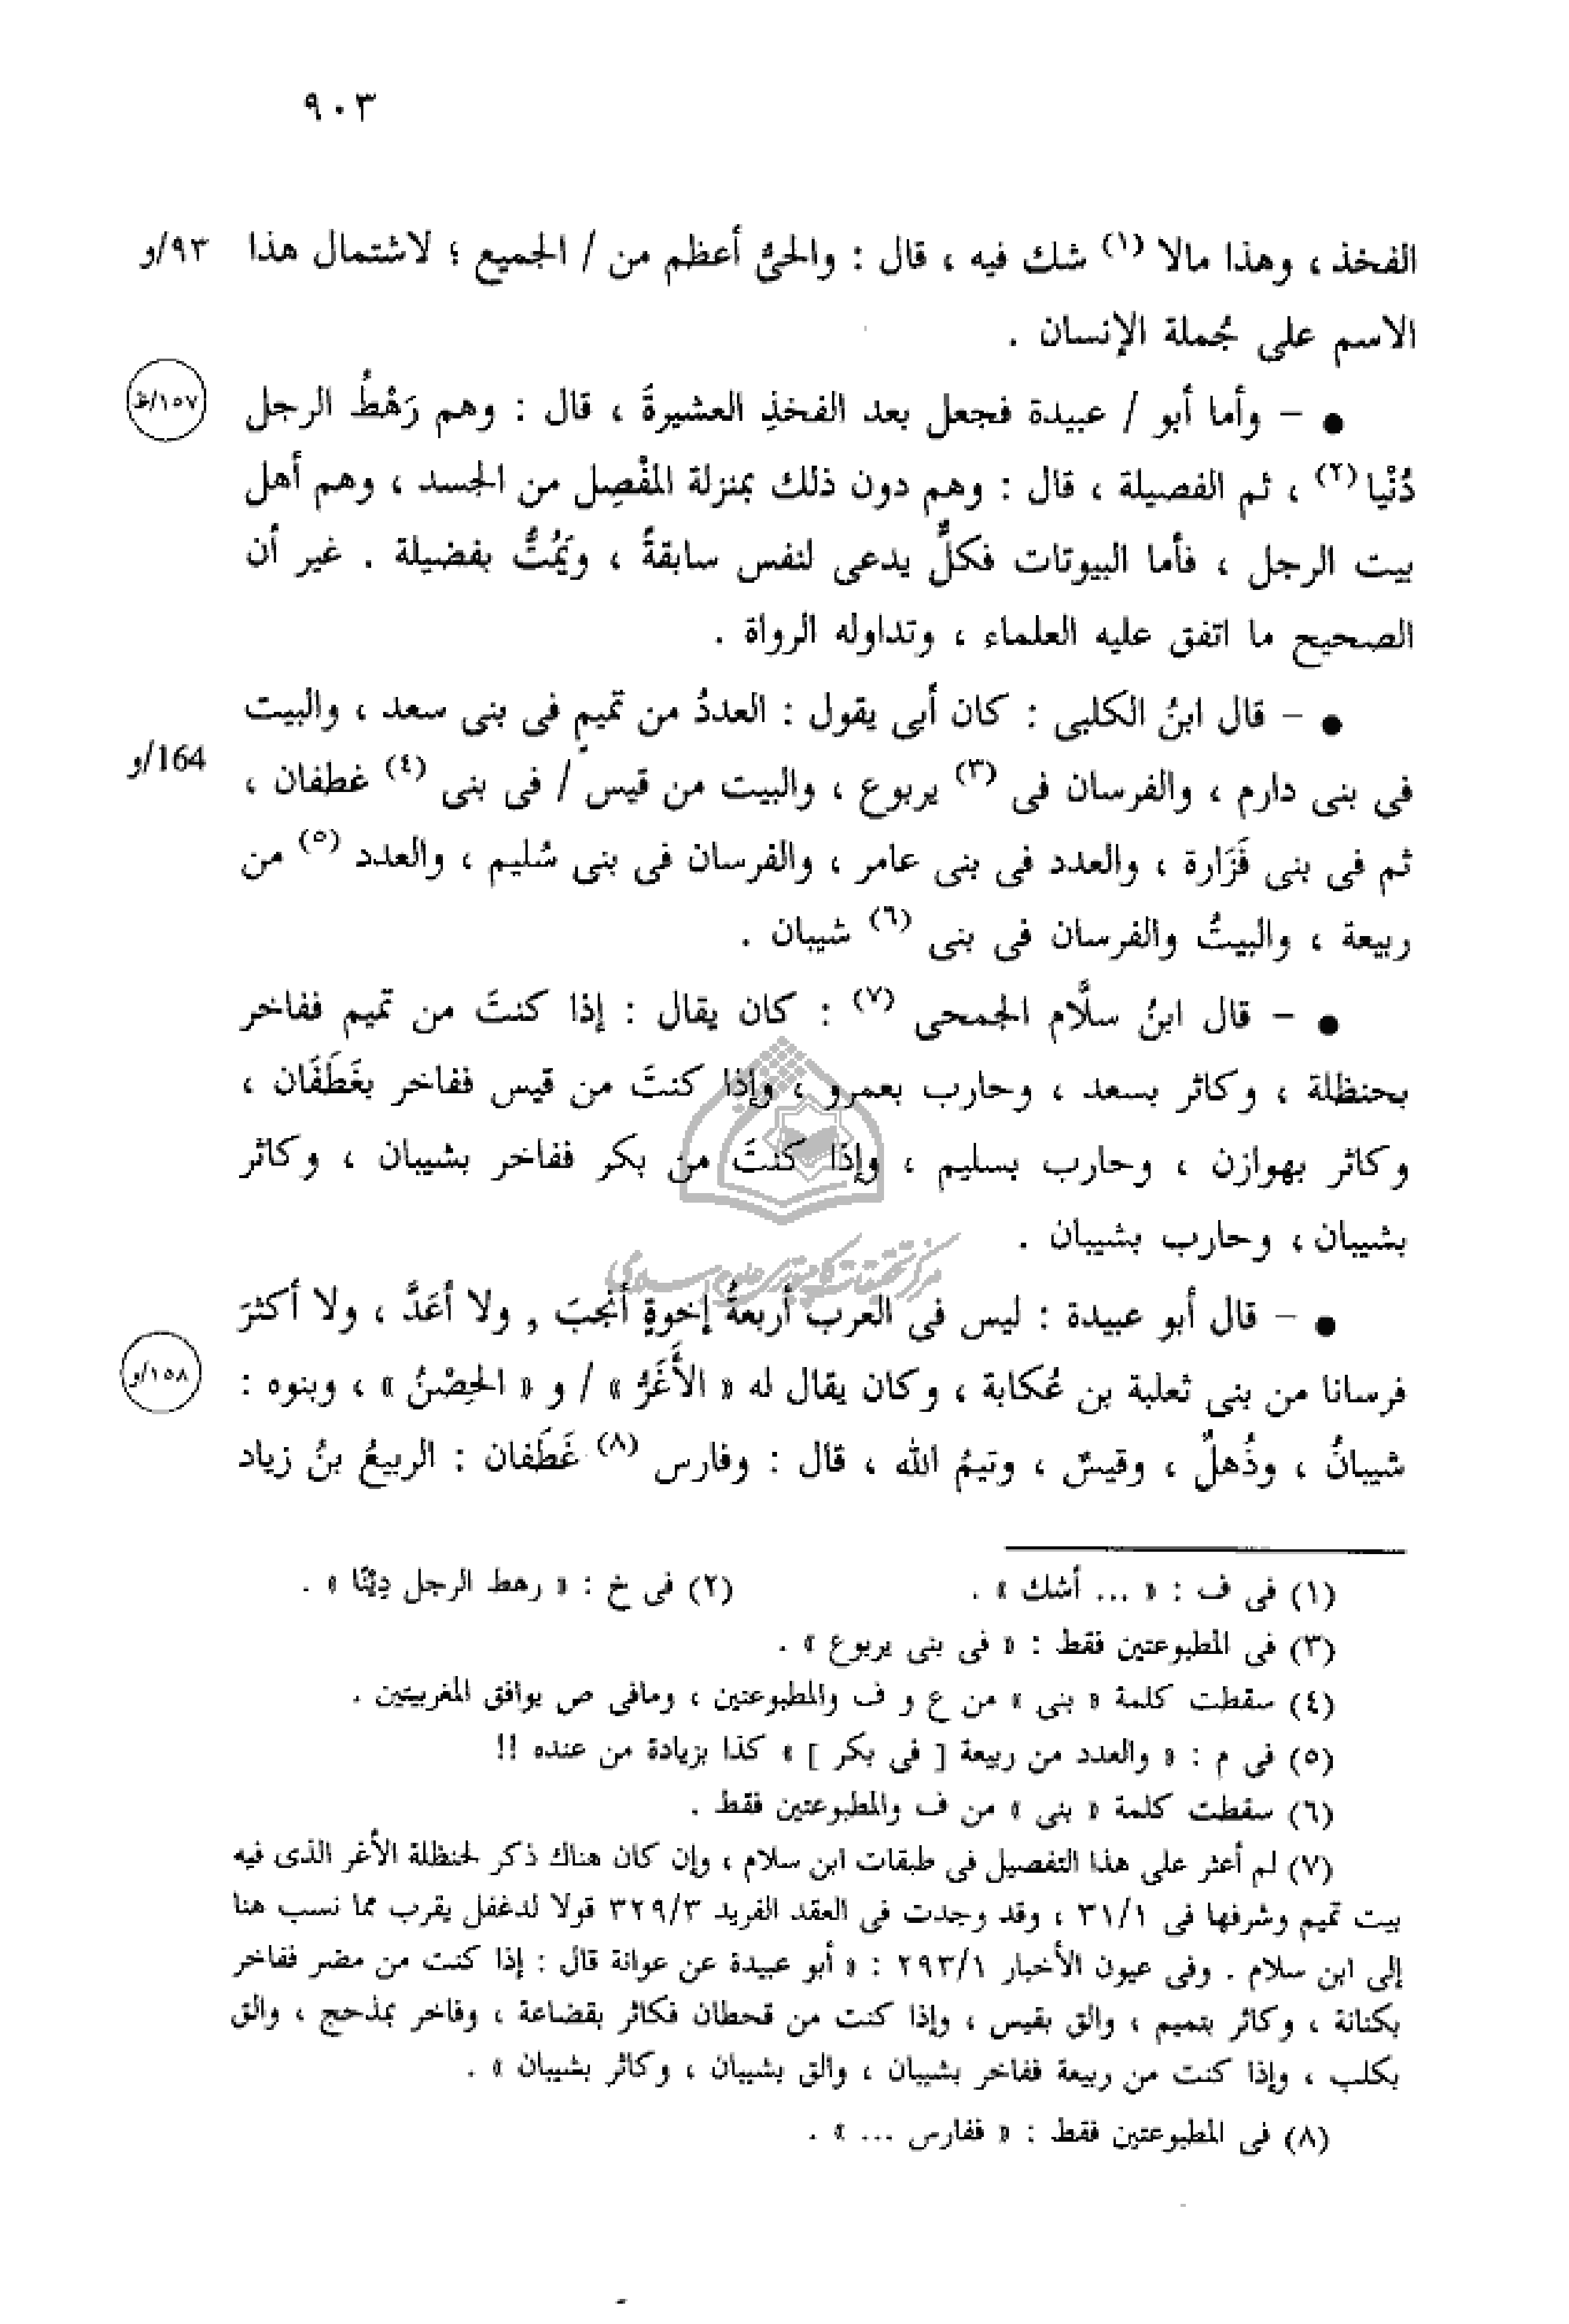 ٩٠٣
الفخذ ، وهذا مالا (١) شك فيه ، قال : والحىُّ أعظم من / الجميع ؛ لاشتمال هذا ٩٣/و
الاسم على جُملة الإنسان .
● – وأما أبو / عبيدة فجعل بعد الفخذِ العشيرةَ ، قال : وهم رَهْطُ الرجل ١٥٧/ظ
دُنْيا (٢) ، ثم الفصيلة ، قال : وهم دون ذلك بمنزلة المفْصِل من الجسد ، وهم أهل
بيت الرجل ، فأما البيوتات فكلٌّ يدعى لنفس سابقةً ، ويَمُتُّ بفضيلة . غير أن
الصحيح ما اتفق عليه العلماء ، وتداوله الرواة .
● – قال ابنُ الكلبى : كان أبى يقول : العددُ من تميمٍ فى بنى سعد ، والبيت
فى بنى دارم ، والفرسان فى (٣) يربوع ، والبيت من قيس / فى بنى (٤) غطفان ، 164/و
ثم فى بنى فَزَارة ، والعدد فى بنى عامر ، والفرسان فى بنى سُليم ، والعدد (٥) من
ربيعة ، والبيتُ والفرسان فى بنى (٦) شيبان .
● – قال ابنُ سلَّام الجمحى (٧) : كان يقال : إذا كنتَ من تميم ففاخر
بحنظلة ، وكاثر بسعد ، وحارب بعمرو ، وإذا كنتَ من قيس ففاخر بغَطَفَان ،
وكاثر بهوازن ، وحارب بسليم ، وإذا كنتَ من بكر ففاخر بشيبان ، وكاثر
بشيبان ، وحارب بشيبان .
مركز تحقيقات كامپيوترى علوم اسلامى
● – قال أبو عبيدة : ليس فى العرب أربعةُ إخوةٍ أنجبَ , ولا أعَدَّ ، ولا أكثرَ
فرسانا من بنى ثعلبة بن عُكابة ، وكان يقال له « الأَغَرُّ » / و « الحِصْنُ » ، وبنوه : ١٥٨/و
شيبانُ ، وذُهلٌ ، وقيسٌ ، وتيمُ الله ، قال : وفارس (٨) غَطَفان : الربيعُ بنُ زياد
(١) فى ف : « ... أشك » . (٢) فى خ : « رهط الرجل دِيْنًا » .
(٣) فى المطبوعتين فقط : « فى بنى يربوع » .
(٤) سقطت كلمة « بنى » من ع و ف والمطبوعتين ، ومافى ص يوافق المغربيتين .
(٥) فى م : « والعدد من ربيعة [ فى بكر ] » كذا بزيادة من عنده !!
(٦) سقطت كلمة « بنى » من ف والمطبوعتين فقط .
(٧) لم أعثر على هذا التفصيل فى طبقات ابن سلام ، وإن كان هناك ذكر لحنظلة الأغر الذى فيه
بيت تميم وشرفها فى ٣١/١ ، وقد وجدت فى العقد الفريد ٣٢٩/٣ قولا لدغفل يقرب مما نسب هنا
إلى ابن سلام . وفى عيون الأخبار ٢٩٣/١ : « أبو عبيدة عن عوانة قال : إذا كنت من مضر ففاخر
بكنانة ، وكاثر بتميم ، والق بقيس ، وإذا كنت من قحطان فكاثر بقضاعة ، وفاخر بمذحج ، والق
بكلب ، وإذا كنت من ربيعة ففاخر بشيبان ، والق بشيبان ، وكاثر بشيبان » .
(٨) فى المطبوعتين فقط : « ففارس ... » .